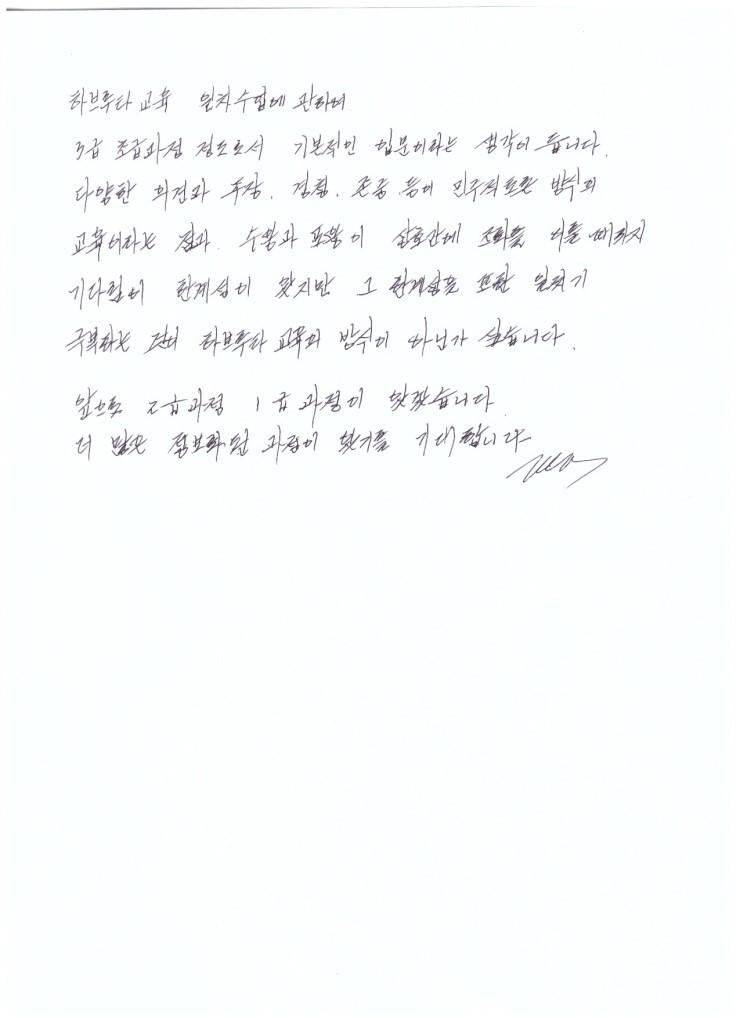 하브루타 교육 일차수업에 관하여
3급 초급과정 정도로서 기본적인 입문이라는 생각이 듭니다.
다양한 의견과 주장, 경청, 존중 등이 민주적으로 방식의
교육이라는 점과 수용과 포용이 상호간에 조화를 이룰때까지
기다림이 한계성이 있지만 그 한계성을 또한
극복하는 것이 하브루타 교육의 방식이 아닌가 싶습니다.
앞으로 2급과정 1급과정이 있겠습니다.
더 많은 정보화된 과정이 있기를 기대합니다